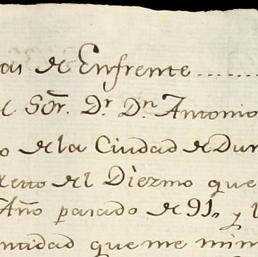 de Enfrente..........
el Sor. Dr. Dn. Antonio
o de la Ciudad de Dur
del Diezmo que
Año pasado de 91, y l
ntidad que me